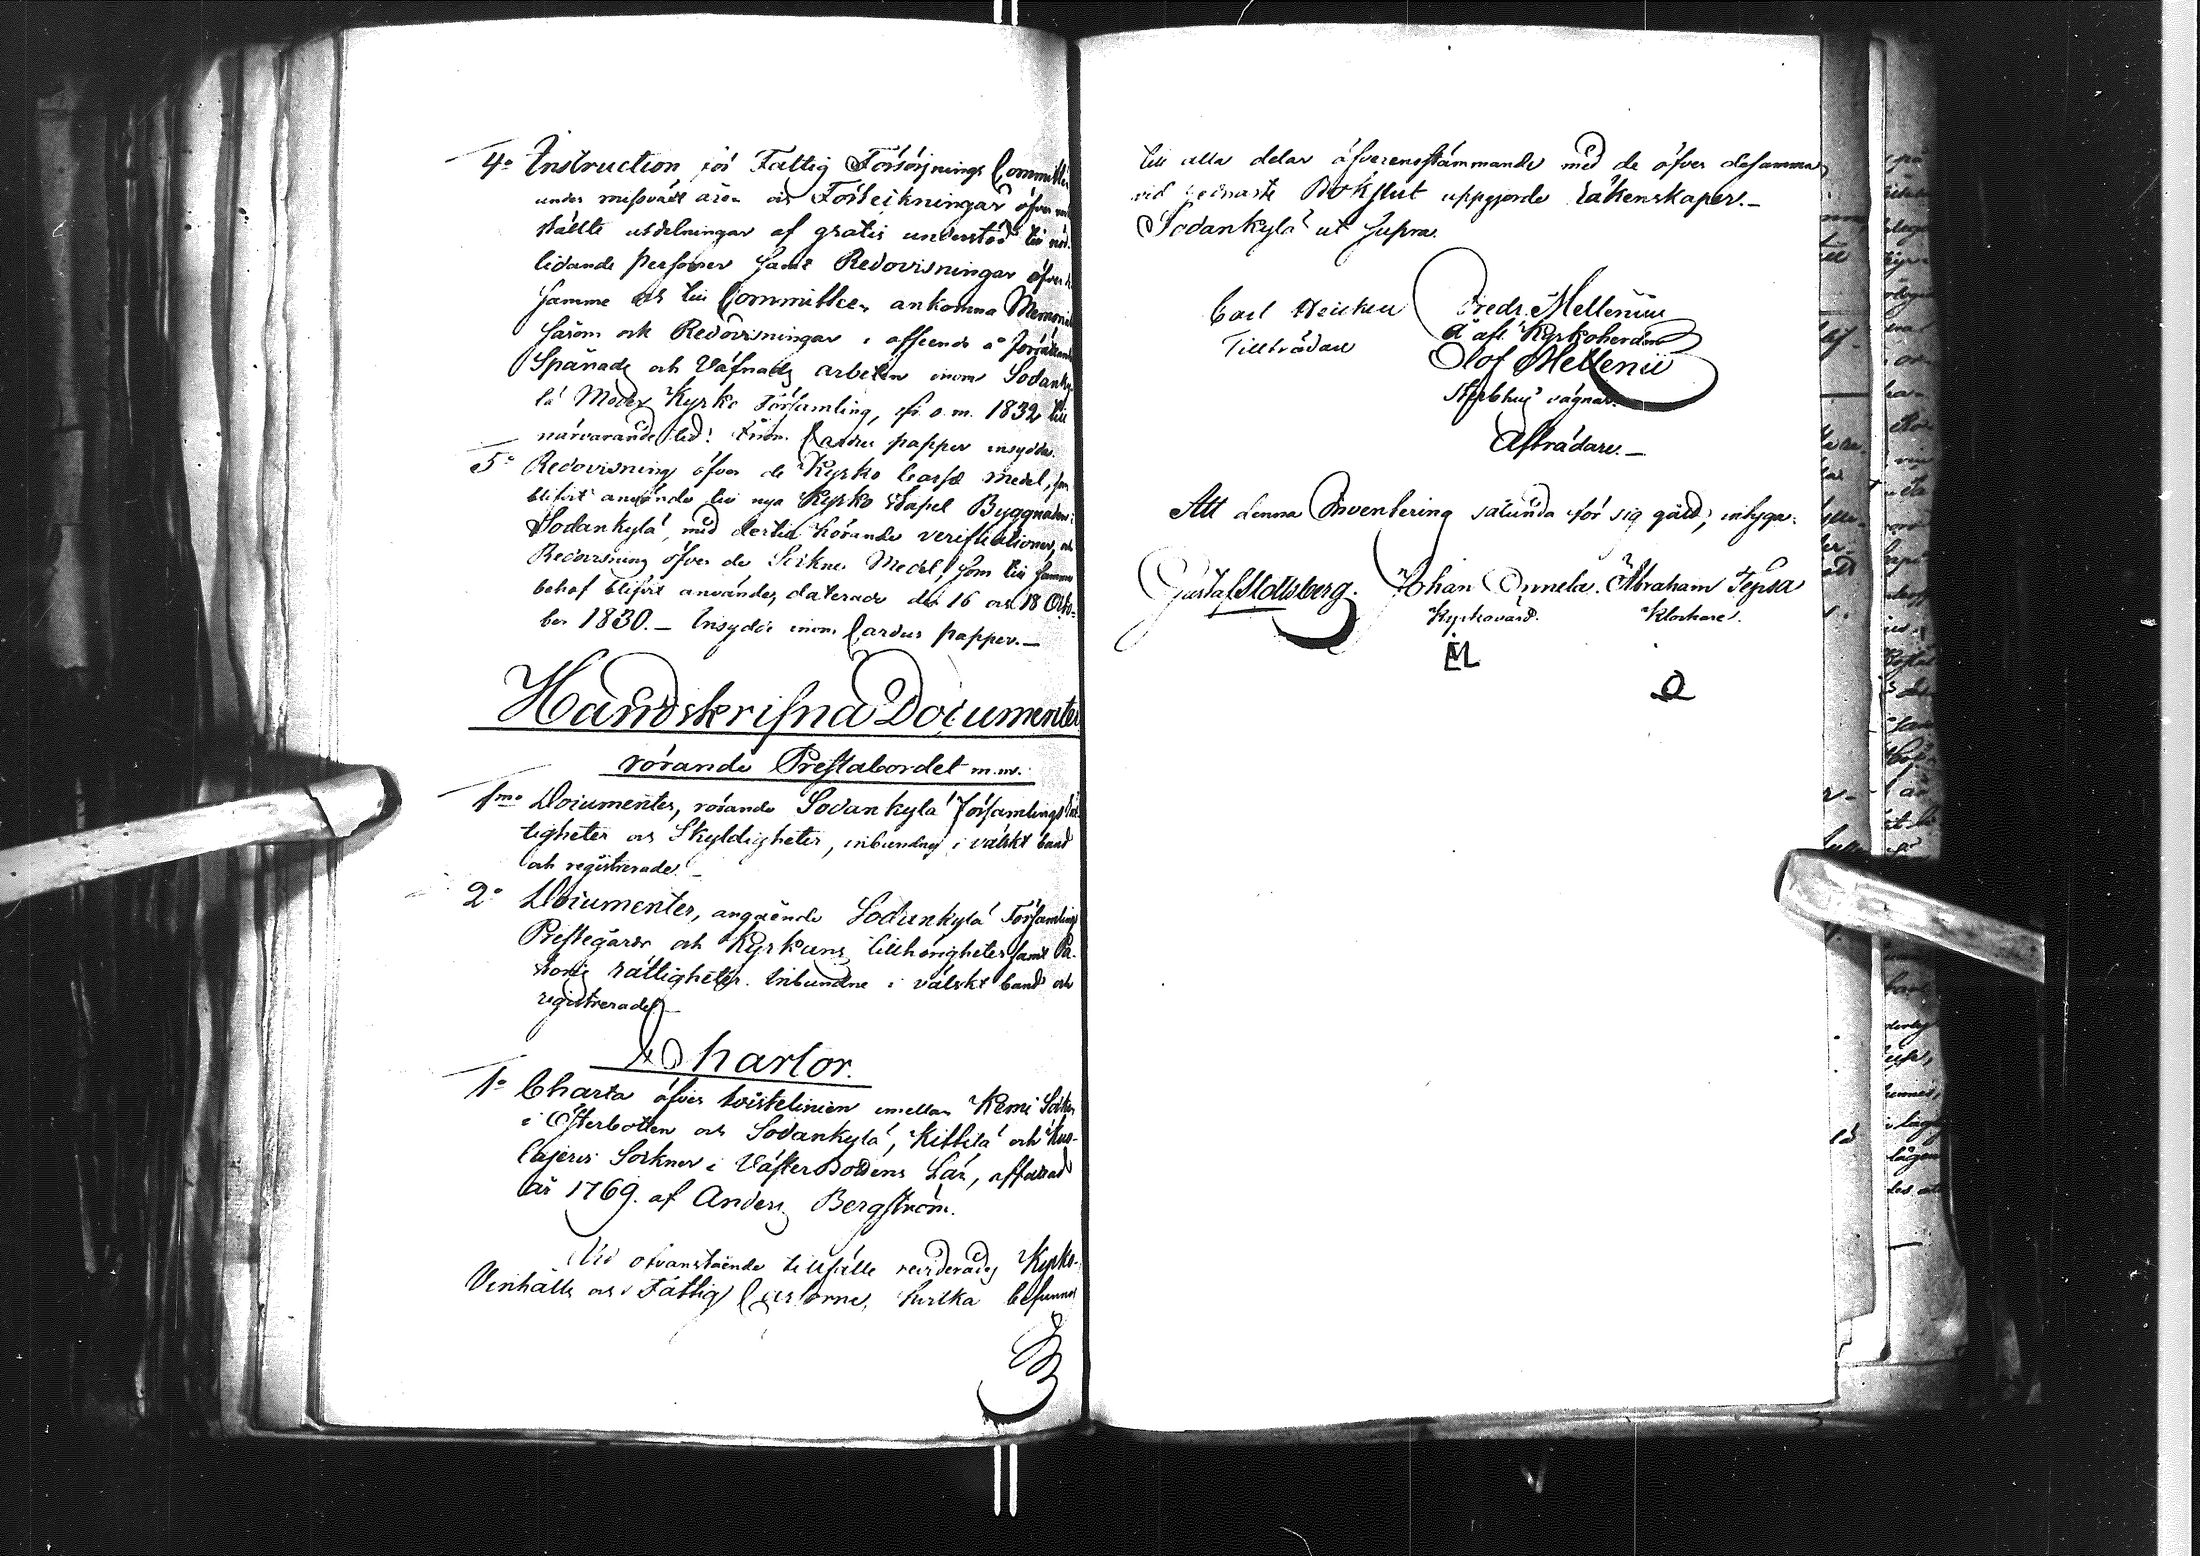 4o Instruction för Fattig Försörjnings Committeen
under missväxt åren och Förteckningar öfver
ställte utdelningar af gratis understöd till nöd-
lidande personer samt Redovisningar öfver
samme och till Committeen ankomna Memorial
såsom ock Redovisningar i afseende å försåldt
Spånads och Väfnads arbeten inom Sodanky-
lä Moder Kyrko Församling, fr. o. m. 1832 till
närvarande tid: inom Cardus papper insydde.
5o Redovisning öfver de Kyrko Cassæ medel, som
blifvit använde till nya Kyrko Stapel Byggnaden i
Sodankylä, med dertill hörande verificationer, och
Redovisning öfver de Sockne Medel, som till samma
behof blifvit använde, daterade den 16 och 18 Octo-
ber 1830. – Insydde inom Cardus papper. –
Handskrifna Documenter
rörande Prestabordet m.m.
1mo Documenter, rörande Sodankylä Församlings Rät-
tigheter och Skyldigheter, inbundne i välskt band
och registrerade. –
2o Documenter, angående Sodankylä Församlings
Prestegårds och Kyrkans tillhörigheter samt Pa-
stors rättigheter. Inbundne i välskt band och
registrerade –
Chartor.
1o Charta öfver tvistelinien emellan Kemi Socken
i Österbotten och Sodankylä, Kittilä och Kuo-
lajervi Socknar i Väster Bottens Län, affattad
år 1769. af Anders Bergström.
Vid ofvanstående tillfälle reviderades Kyrko-
Vinhålls och Fattig Cassorne, hvilka befunnos
till alla delar öfverensstämmande med de öfver desamma
vid sednaste Bokslut uppgjorde räkenskaper. –
Sodankylä ut supra.
Carl Heickell Fredr. Mellenius
Tillträdare å afl. Kyrkoherden
Olof Mellenii
Sterbhus vägnar
Afträdare. –
Att denna Inventering sålunda för sig gått, intyga:
Gustaf Stoltsberg. Johan Onnela. Abraham Sepsa
Kyrkovärd. Klockare.